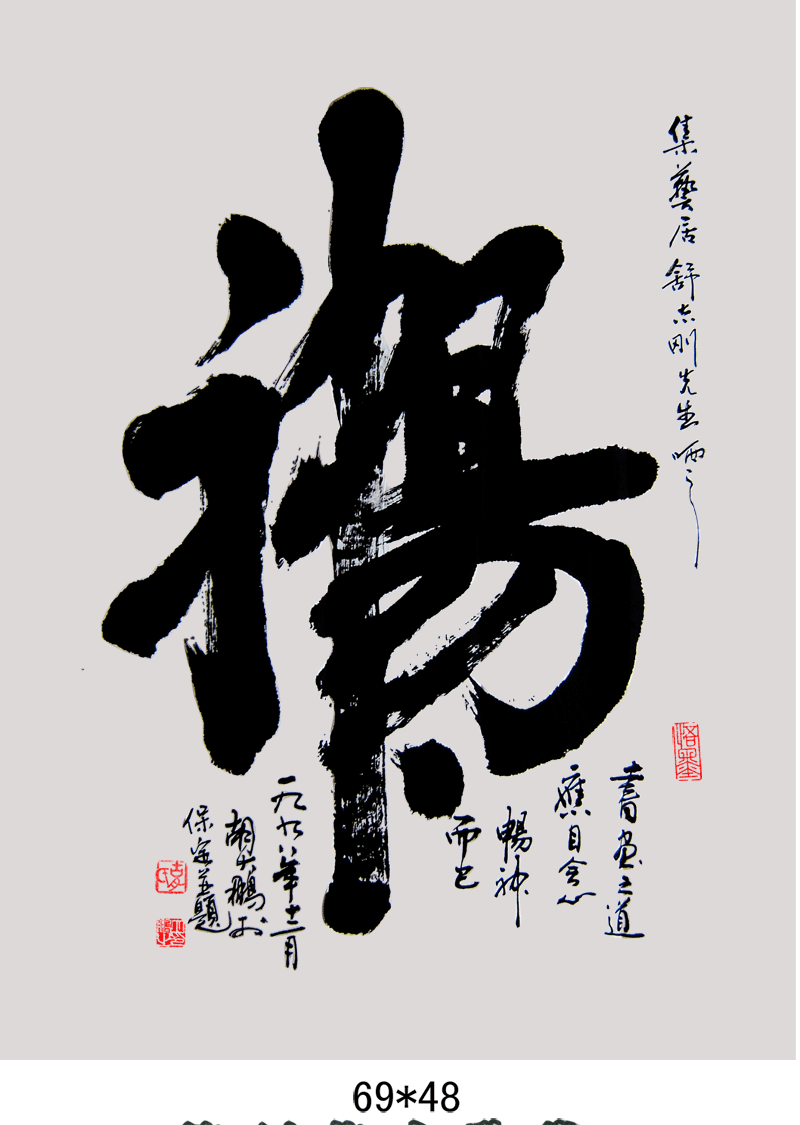 集藝居舒志刚先生哂之
書畫之道
應目會心
暢神
而已
一九九八年十二月
保定並題
69*48